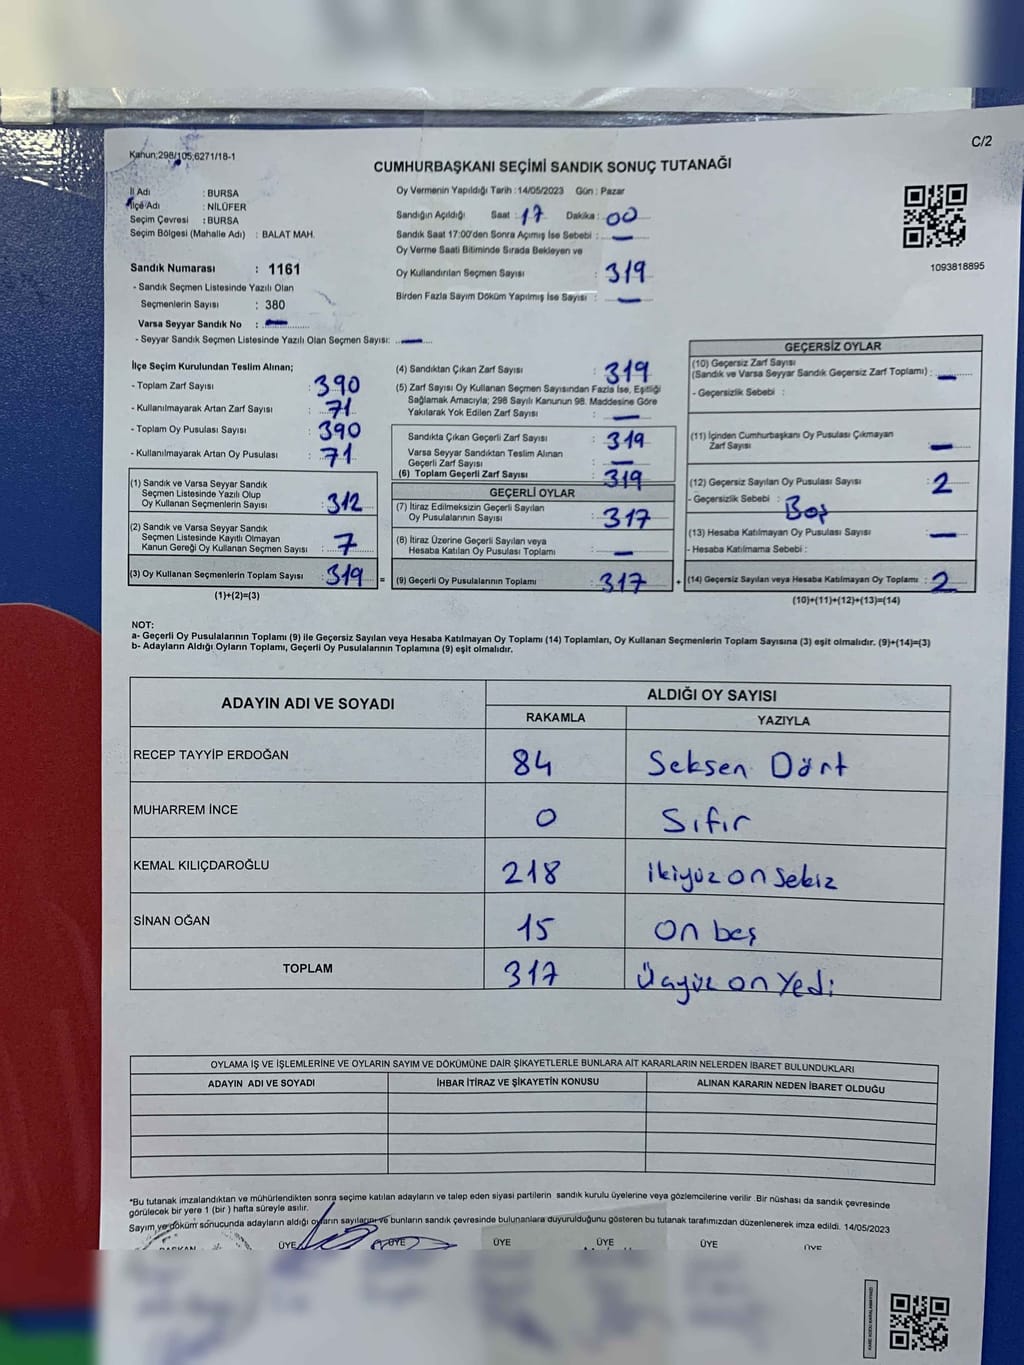 C/2
Kanun;298/105;6271/18-1
CUMHURBAŞKANI SEÇİMİ SANDIK SONUÇ TUTANAĞI
İl Adı : BURSA
İlçe Adı : NİLÜFER
Seçim Çevresi : BURSA
Seçim Bölgesi (Mahalle Adı) : BALAT MAH.
Sandık Numarası : 1161
- Sandık Seçmen Listesinde Yazılı Olan
Seçmenlerin Sayısı : 380
Varsa Seyyar Sandık No : —
- Seyyar Sandık Seçmen Listesinde Yazılı Olan Seçmen Sayısı: —
Oy Vermenin Yapıldığı Tarih : 14/05/2023 Gün : Pazar
Sandığın Açıldığı Saat : 17 Dakika : 00
Sandık Saat 17:00'den Sonra Açımış İse Sebebi : —
Oy Verme Saati Bitiminde Sırada Bekleyen ve
Oy Kullandırılan Seçmen Sayısı : 319
Birden Fazla Sayım Döküm Yapılmış İse Sayısı : —
1093818895
İlçe Seçim Kurulundan Teslim Alınan;
- Toplam Zarf Sayısı : 390
- Kullanılmayarak Artan Zarf Sayısı : 71
- Toplam Oy Pusulası Sayısı : 390
- Kullanılmayarak Artan Oy Pusulası : 71
(1) Sandık ve Varsa Seyyar Sandık
Seçmen Listesinde Yazılı Olup
Oy Kullanan Seçmenlerin Sayısı : 312
(2) Sandık ve Varsa Seyyar Sandık
Seçmen Listesinde Kayıtlı Olmayan
Kanun Gereği Oy Kullanan Seçmen Sayısı : 7
(3) Oy Kullanan Seçmenlerin Toplam Sayısı : 319 =
(1)+(2)=(3)
(4) Sandıktan Çıkan Zarf Sayısı : 319
(5) Zarf Sayısı Oy Kullanan Seçmen Sayısından Fazla İse, Eşitliği
Sağlamak Amacıyla; 298 Sayılı Kanunun 98. Maddesine Göre
Yakılarak Yok Edilen Zarf Sayısı : —
Sandıkta Çıkan Geçerli Zarf Sayısı : 319
Varsa Seyyar Sandıktan Teslim Alınan
Geçerli Zarf Sayısı : —
(6) Toplam Geçerli Zarf Sayısı : 319
GEÇERLİ OYLAR
(7) İtiraz Edilmeksizin Geçerli Sayılan
Oy Pusulalarının Sayısı : 317
(8) İtiraz Üzerine Geçerli Sayılan veya
Hesaba Katılan Oy Pusulası Toplamı : —
(9) Geçerli Oy Pusulalarının Toplamı : 317 +
GEÇERSİZ OYLAR
(10) Geçersiz Zarf Sayısı
(Sandık ve Varsa Seyyar Sandık Geçersiz Zarf Toplamı) : —
- Geçersizlik Sebebi :
(11) İçinden Cumhurbaşkanı Oy Pusulası Çıkmayan
Zarf Sayısı : —
(12) Geçersiz Sayılan Oy Pusulası Sayısı : 2
- Geçersizlik Sebebi : Boş
(13) Hesaba Katılmayan Oy Pusulası Sayısı : —
- Hesaba Katılmama Sebebi :
(14) Geçersiz Sayılan veya Hesaba Katılmayan Oy Toplamı : 2
(10)+(11)+(12)+(13)=(14)
NOT:
a- Geçerli Oy Pusulalarının Toplamı (9) ile Geçersiz Sayılan veya Hesaba Katılmayan Oy Toplamı (14) Toplamları, Oy Kullanan Seçmenlerin Toplam Sayısına (3) eşit olmalıdır. (9)+(14)=(3)
b- Adayların Aldığı Oyların Toplamı, Geçerli Oy Pusulalarının Toplamına (9) eşit olmalıdır.
ADAYIN ADI VE SOYADI ALDIĞI OY SAYISI
RAKAMLA YAZIYLA
RECEP TAYYİP ERDOĞAN 84 Seksen Dört
MUHARREM İNCE 0 Sıfır
KEMAL KILIÇDAROĞLU 218 ikiyüz on sekiz
SİNAN OĞAN 15 on beş
TOPLAM 317 Üçyüz on Yedi
OYLAMA İŞ VE İŞLEMLERİNE VE OYLARIN SAYIM VE DÖKÜMÜNE DAİR ŞİKAYETLERLE BUNLARA AİT KARARLARIN NELERDEN İBARET BULUNDUKLARI
ADAYIN ADI VE SOYADI İHBAR İTİRAZ VE ŞİKAYETİN KONUSU ALINAN KARARIN NEDEN İBARET OLDUĞU
*Bu tutanak imzalandıktan ve mühürlendikten sonra seçime katılan adayların ve talep eden siyasi partilerin sandık kurulu üyelerine veya gözlemcilerine verilir .Bir nüshası da sandık çevresinde
görülecek bir yere 1 (bir ) hafta süreyle asılır.
Sayım ve döküm sonucunda adayların aldığı oyların sayılarını ve bunların sandık çevresinde bulunanlara duyurulduğunu gösteren bu tutanak tarafımızdan düzenlenerek imza edildi. 14/05/2023
BAŞKAN ÜYE ÜYE ÜYE ÜYE ÜYE ÜYE